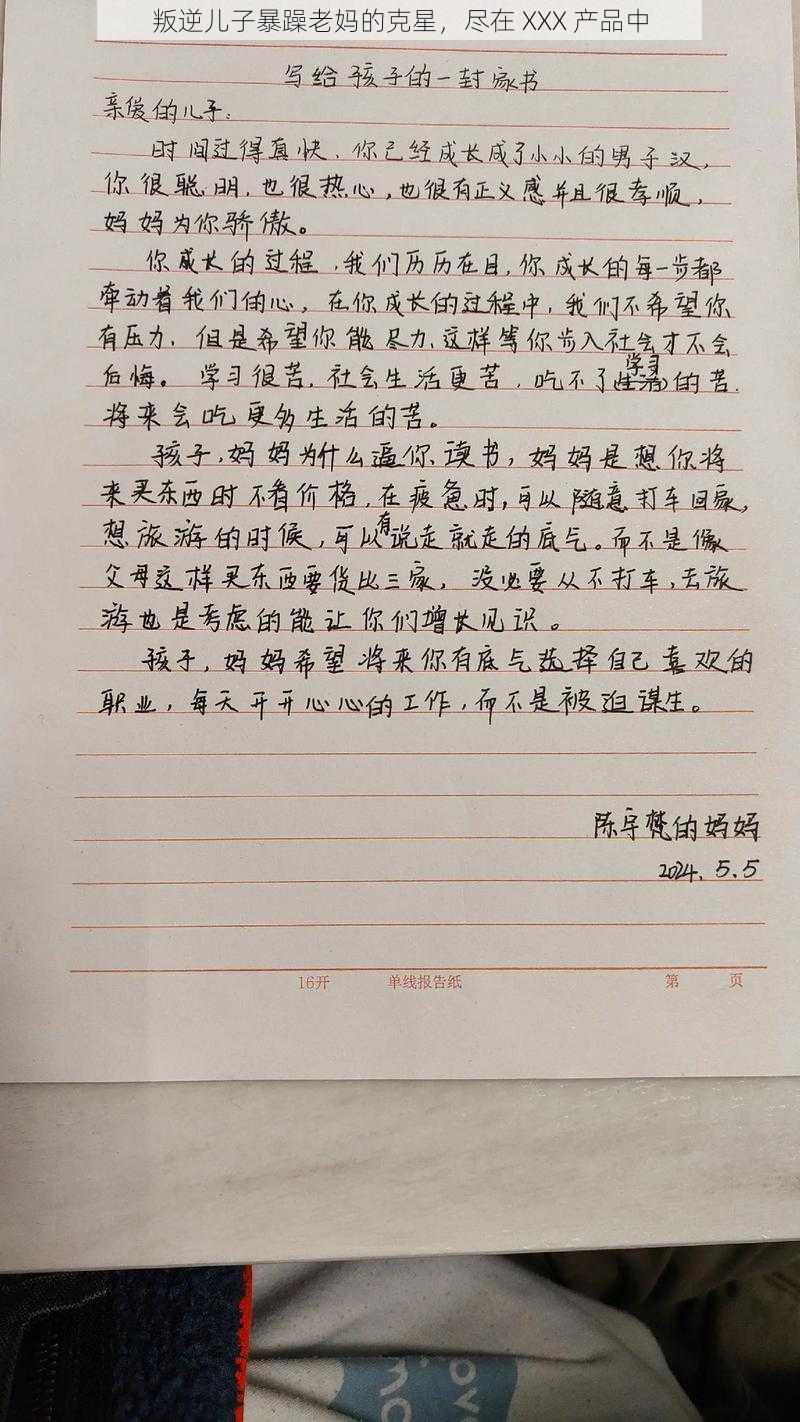 叛逆儿子暴躁老妈的克星，尽在 XXX 产品中
写给孩子的一封家书
亲爱的儿子：
时间过得真快，你已经成长成了小小的男子汉，
你很聪明，也很热心，也很有正义感并且很孝顺，
妈妈为你骄傲。
你成长的过程，我们历历在目，你成长的每一步都
牵动着我们的心，在你成长的过程中，我们不希望你
有压力，但是希望你能尽力，这样等你步入社会才不会
后悔。学习很苦，社会生活更苦，吃不了学习的苦，
将来会吃更多生活的苦。
孩子，妈妈为什么逼你读书，妈妈是想你将
来买东西时不看价格，在疲惫时，可以随意打车回家，
想旅游的时候，可以有说走就走的底气。而不是像
父母这样买东西要货比三家，没必要从不打车，去旅
游也是考虑的能让你们增长见识。
孩子，妈妈希望将来你有底气选择自己喜欢的
职业，每天开开心心的工作，而不是被迫谋生。
陈宇梵的妈妈
2024.5.5
16开 单线报告纸 第 页